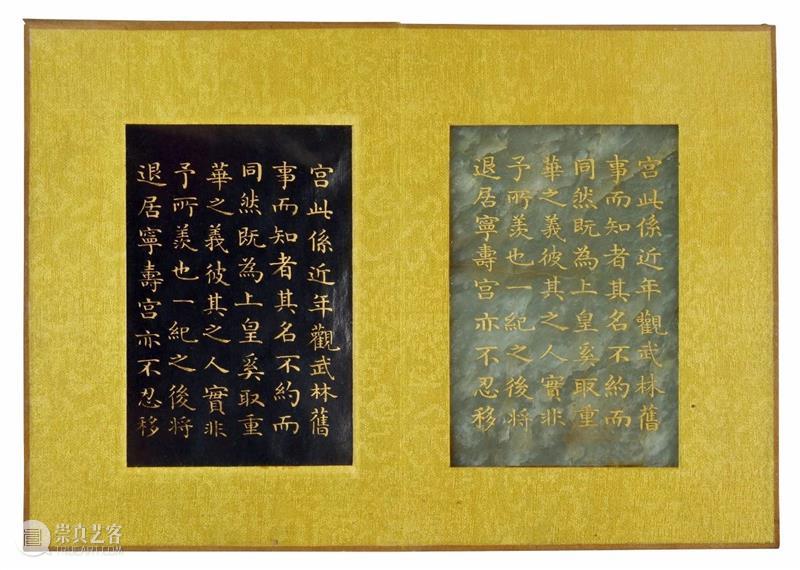 宫此係近年觀武林舊
事而知者其名不約而
同然既為上皇奚取重
華之義彼其之人實非
予所羨也一紀之後將
退居寧壽宫亦不忍移
宫此係近年觀武林舊
事而知者其名不約而
同然既為上皇奚取重
華之義彼其之人實非
予所羨也一紀之後將
退居寧壽宫亦不忍移
崇真艺客
TRUEART.COM